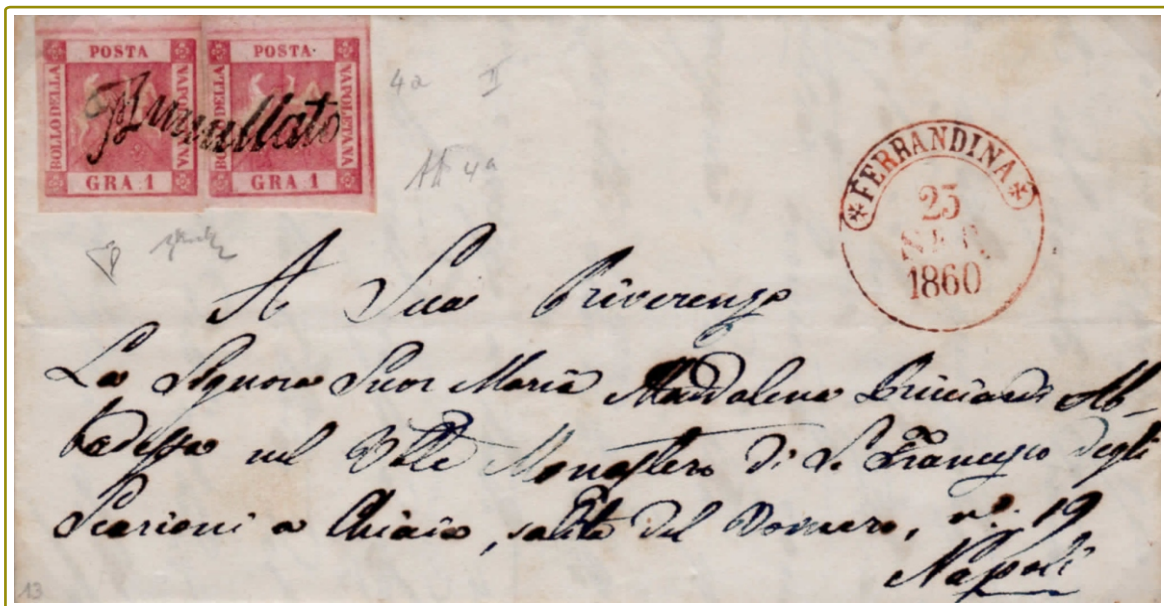 POSTA POSTA
BOLLO DELLA NAPOLETANA BOLLO DELLA NAPOLETANA
Annullato
GRA 1 GRA 1
4a II
4a
FERRANDINA
25
1860
A Sua Riverenza
La Signora Suor Maria Maddalena Ricciardi Ab-
badessa nel Ven̄le Monastero di S. Francesco degli
Scarioni a Chiaia, salita del Vomero, n.º 19
Napoli
13